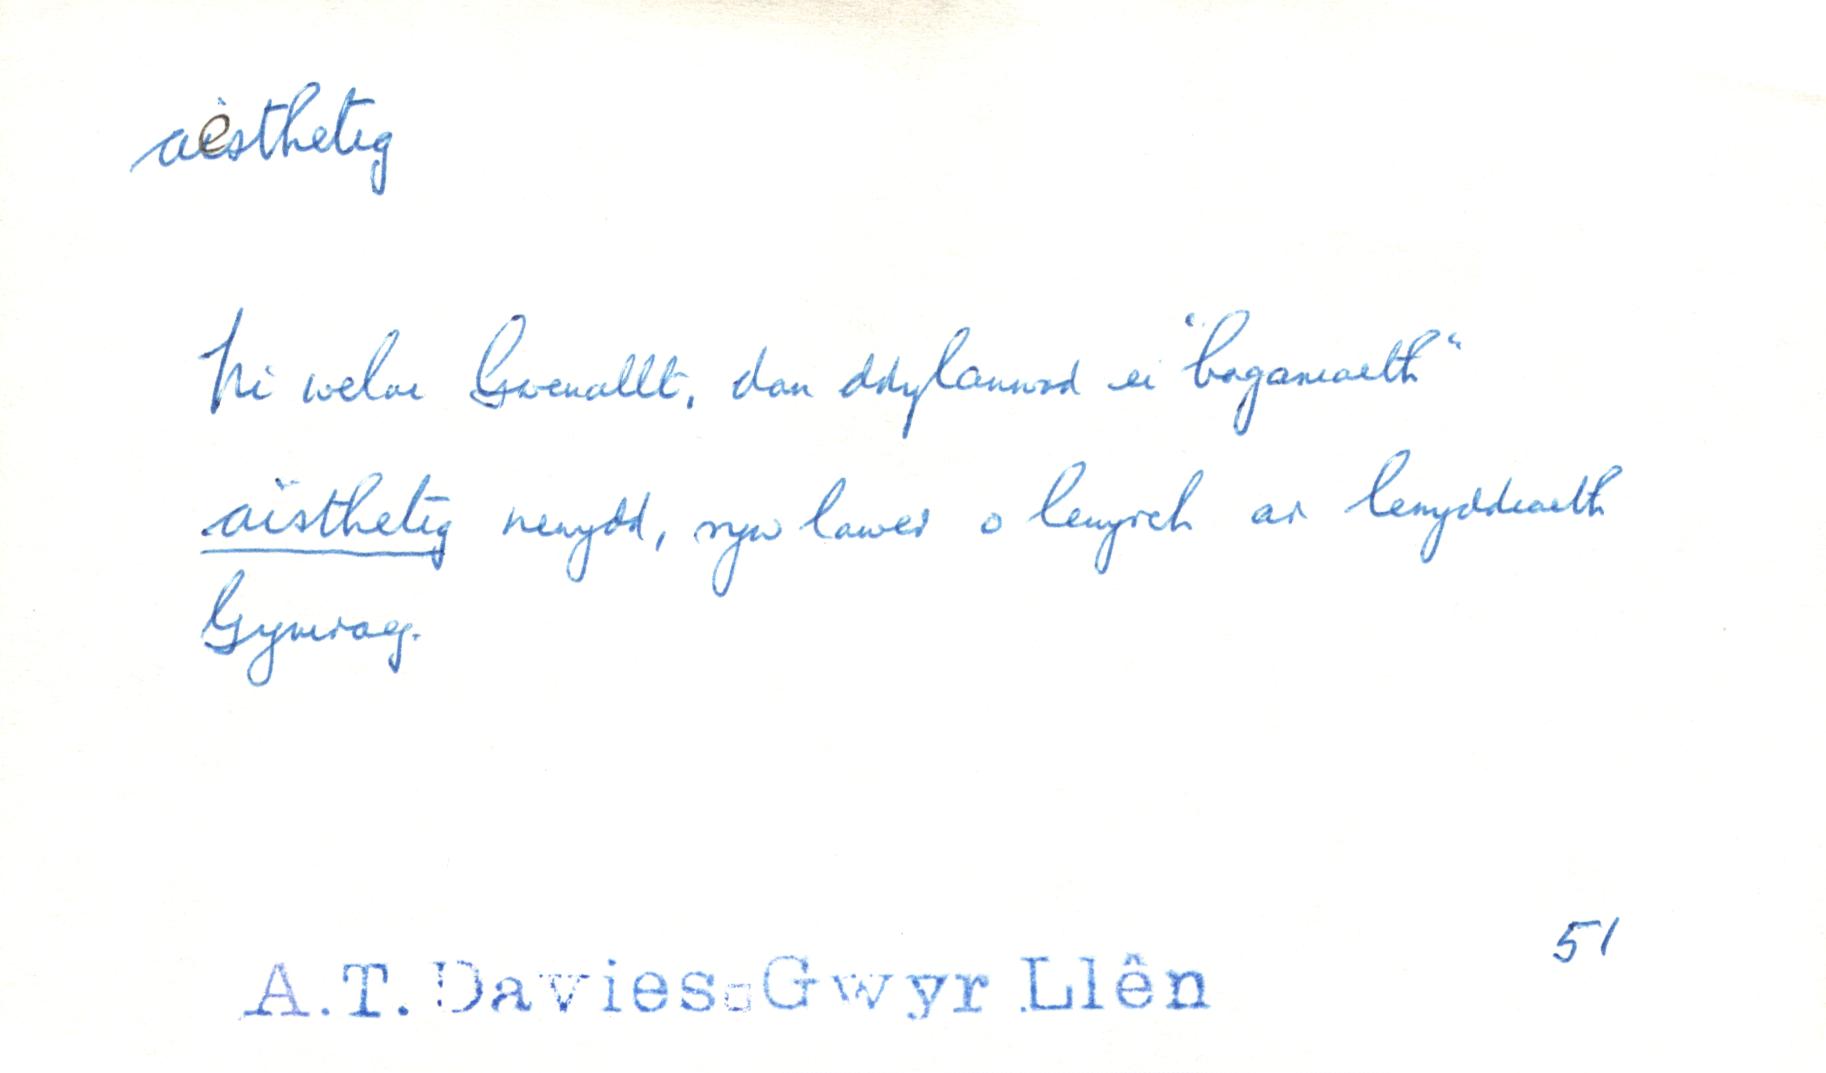 aesthetig
Ni welai Gwenallt, dan ddylanwad ei "baganiaeth"
aïsthetig newydd, ryw lawer o lewyrch ar lenyddiaeth
Gymraeg.
51
A.T. Davies: Gwyr Llên